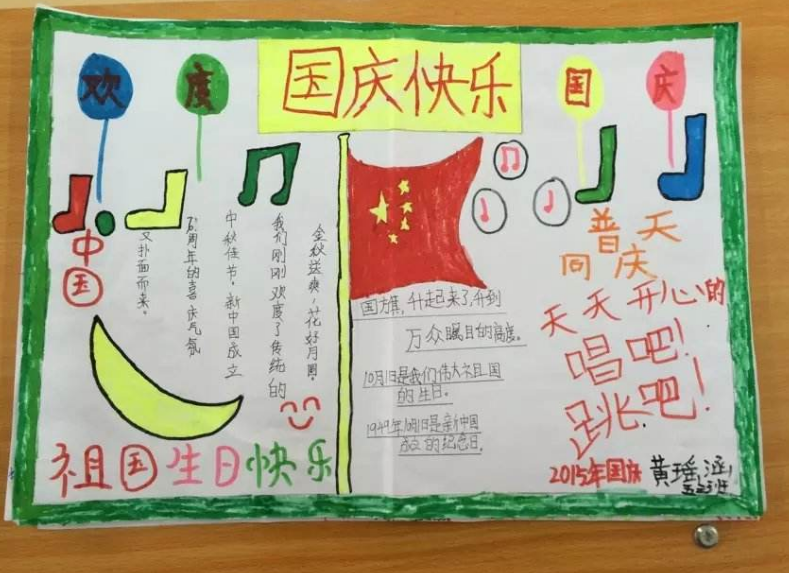 欢度
国庆快乐
国庆
中国
金秋送爽，花好月圆，
我们刚刚欢度了传统的
中秋佳节，新中国成立
周年的喜庆气氛
又扑面而来。
祖国生日快乐
国旗，升起来了，升到
万众瞩目的高度。
10月1日是我们伟大祖国
的生日。
1949年10月1日是新中国
成立的纪念日。
普天
同庆
天天开心的
唱吧！
跳吧！
2015年国庆
黄瑶涵